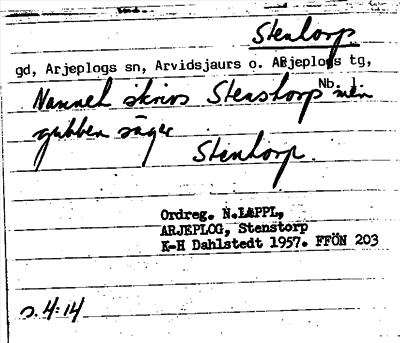 Stentorp.
gd, Arjeplogs sn, Arvidsjaurs o. Arjeplogs tg,
Nb. l.
Namnet skrivs Stenstorp men
gubben säger
Stentorp.
Ordreg. N.LAPPL,
ARJEPLOG, Stenstorp
K-H Dahlstedt 1957. FFÖN 203
s. 4:14